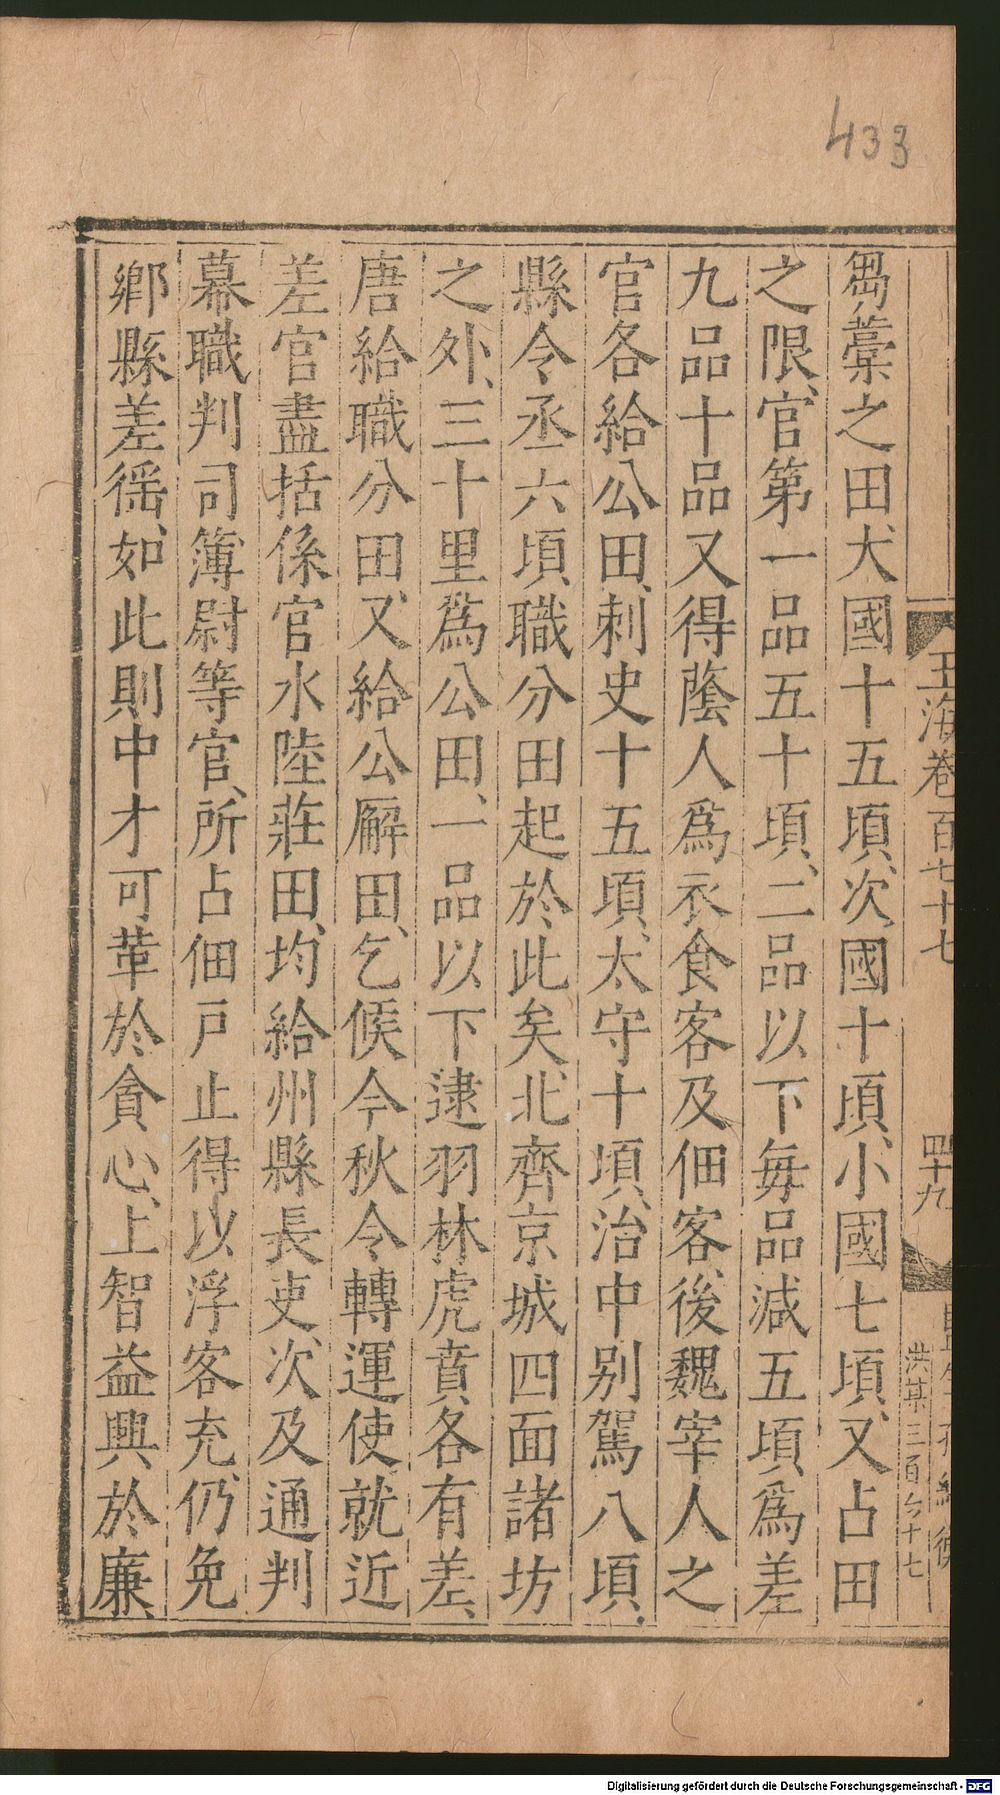 433
玉海卷百七十七
四十九
芻藁之田大國十五頃次國十頃小國七頃又占田
之限官第一品五十頃二品以下每品减五頃爲差
九品十品又得蔭人爲衣食客及佃客後魏宰人之
官各給公田刺史十五頃太守十頃治中别駕八頃
縣令丞六頃職分田起於此矣北齊京城四面諸坊
之外三十里爲公田一品以下逮羽林虎賁各有差
唐給職分田又給公廨田乞候今秋令轉運使就近
差官盡括係官水陸莊田均給州縣長吏次及通判
幕職判司簿尉等官所占佃戸止得以浮客充仍免
鄉縣差徭如此則中才可革於貪心上智益興於廉
Digitalisierung gefördert durch die Deutsche Forschungsgemeinschaft - DFG